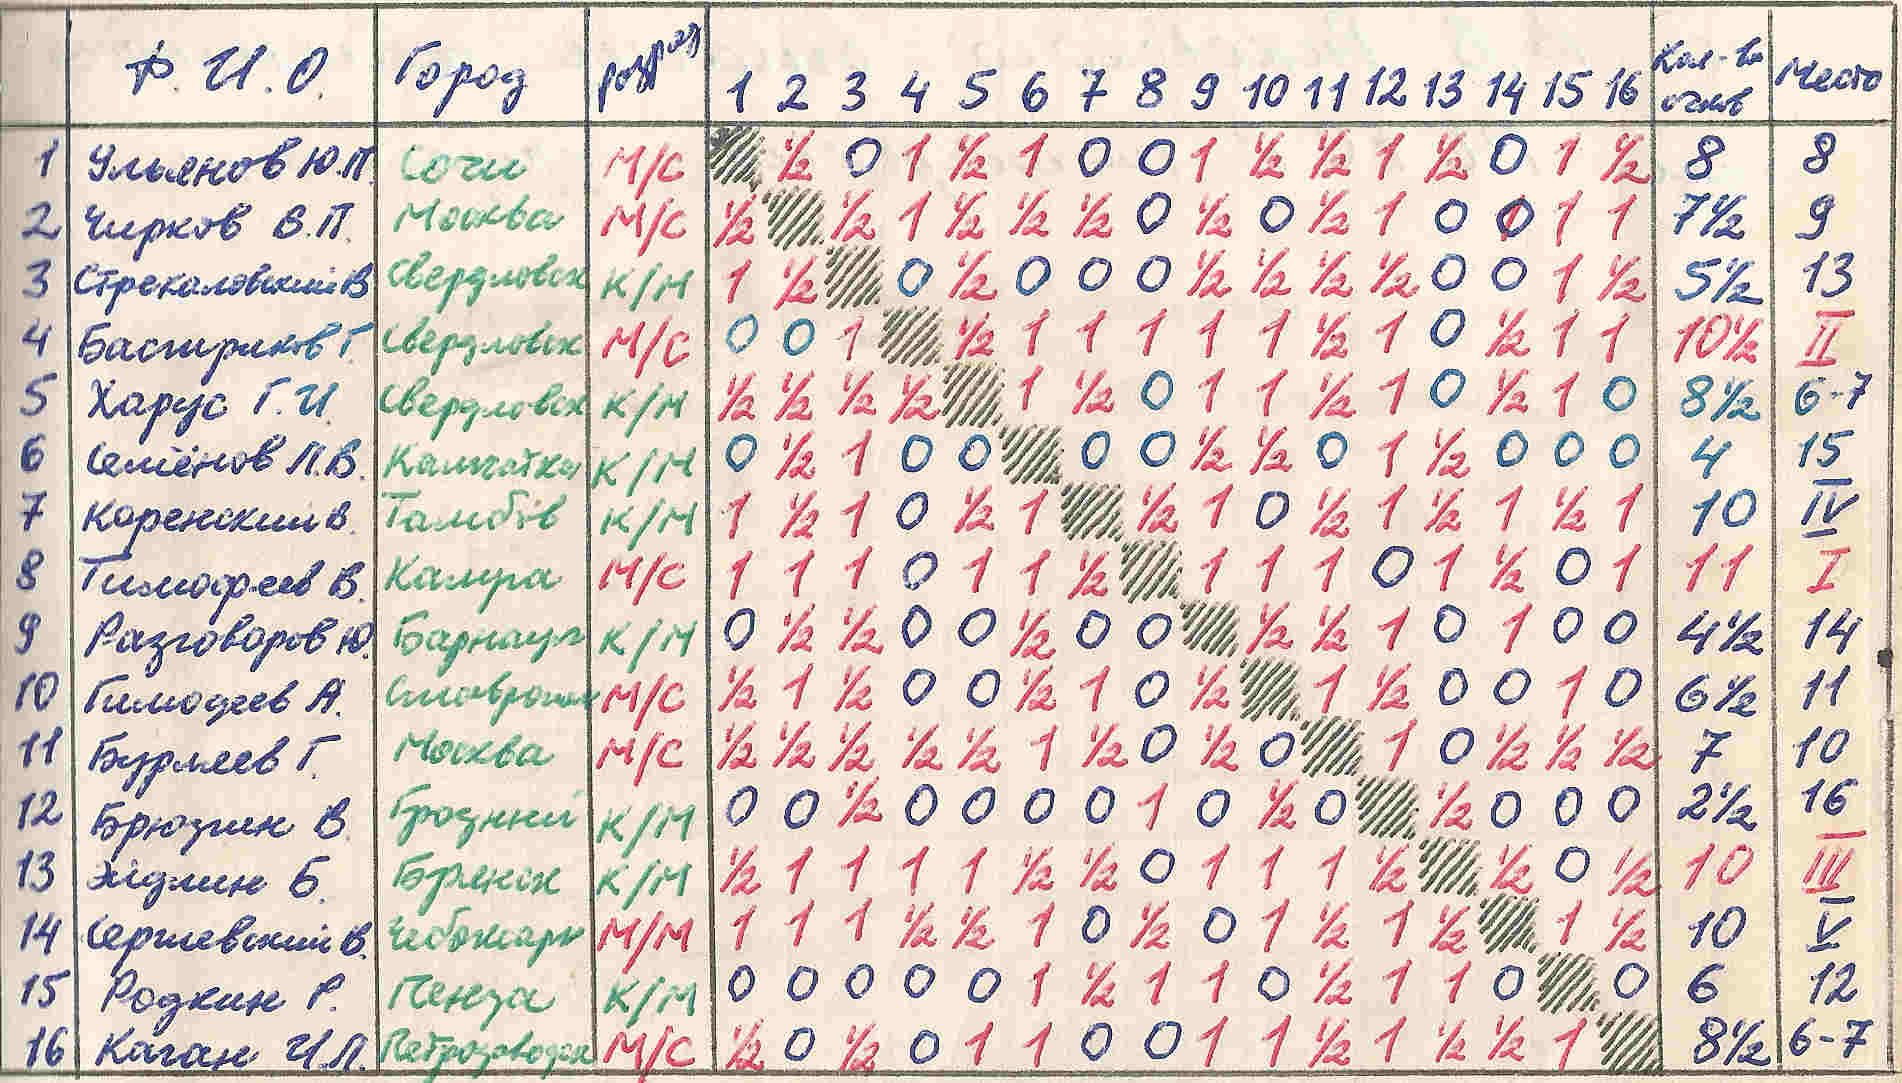 Ф. И. О. Город разряд 1 2 3 4 5 6 7 8 9 10 11 12 13 14 15 16 Кол-во очков Место
1 Ульянов Ю.П. Сочи М/С ½ 0 1 ½ 1 0 0 1 ½ ½ 1 ½ 0 1 ½ 8 8
2 Чирков В.П. Москва М/С ½ ½ 1 ½ ½ ½ 0 ½ 0 ½ 1 0 0 1 1 7½ 9
3 Стрекаловский В Свердловск К/М 1 ½ 0 ½ 0 0 0 ½ ½ ½ ½ 0 0 1 ½ 5½ 13
4 Багириков Г. Свердловск М/С 0 0 1 ½ 1 1 1 1 1 ½ 1 0 ½ 1 1 10½ II
5 Харус Г.И. Свердловск К/М ½ ½ ½ ½ 1 ½ 0 1 1 ½ 1 0 ½ 1 0 8½ 6-7
6 Семёнов Л.В. Камчатка К/М 0 ½ 1 0 0 0 0 ½ ½ 0 1 ½ 0 0 0 4 15
7 Каренский В. Тамбов К/М 1 ½ 1 0 ½ 1 ½ 1 0 ½ 1 ½ 1 ½ 1 10 IV
8 Тимофеев В. Калуга М/С 1 1 1 0 1 1 ½ 1 1 1 0 1 ½ 0 1 11 I
9 Разговоров Ю. Барнаул К/М 0 ½ ½ 0 0 ½ 0 0 ½ ½ 1 0 1 0 0 4½ 14
10 Тимофеев А. Ставрополь М/С ½ 1 ½ 0 0 ½ 1 0 ½ 1 ½ 0 0 1 0 6½ 11
11 Бурляев Г. Москва М/С ½ ½ ½ ½ ½ 1 ½ 0 ½ 0 1 0 ½ ½ ½ 7 10
12 Брюзгин В. Грозный К/М 0 0 ½ 0 0 0 0 1 0 ½ 0 ½ 0 0 0 2½ 16
13 Эйдлин Б. Брянск К/М ½ 1 1 1 1 ½ ½ 0 1 1 1 ½ ½ 0 ½ 10 III
14 Сергиевский В. Чебоксары М/М 1 1 1 ½ ½ 1 0 ½ 0 1 ½ 1 ½ 1 ½ 10 V
15 Родкин Р. Пенза К/М 0 0 0 0 0 1 ½ 1 1 0 ½ 1 1 0 0 6 12
16 Каган И.Л. Петрозаводск М/С ½ 0 ½ 0 1 1 0 0 1 1 ½ 1 ½ ½ 1 8½ 6-7